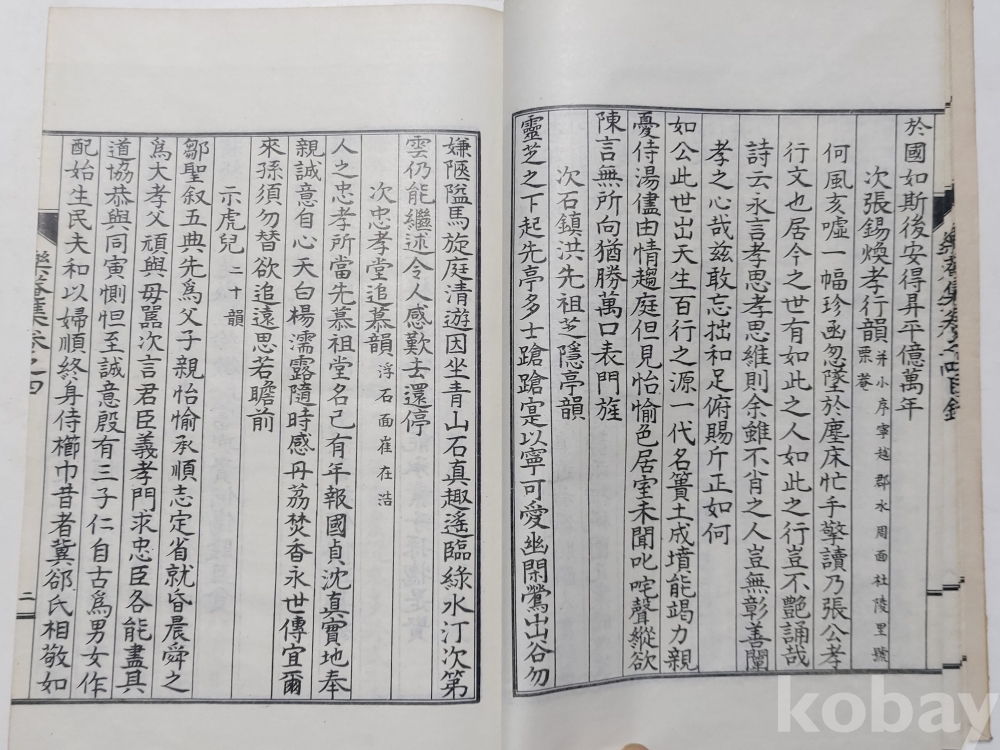 於國如斯後安得昇平億萬年
次張錫煥孝行韻 并小序寧越郡水周面杜陵里號栗菴
何風亥噓一幅珍函忽墜於塵床忙手擎讀乃張公孝
行文也居今之世有如此之人如此之行豈不艷誦哉
詩云永言孝思孝思維則余雖不肖之人豈無彰善闡
孝之心哉玆敢忘拙和足俯賜斤正如何
如公此世出天生百行之源一代名簣土成墳能竭力親
憂侍湯儘由情趨庭但見怡愉色居室未聞叱咤聲縱欲
陳言無所向猶勝萬口表門旌
次石鎮洪先祖芝隱亭韻
靈芝之下起先亭多士蹌蹌寔以寧可愛幽閑鶯出谷勿
嫌陋隘馬旋庭清遊因坐青山石真趣遙臨綠水汀次第
雲仍能繼述令人感歎去還停
次忠孝堂追慕韻 浮石面崔在浩
人之忠孝所當先慕祖堂名已有年報國貞沈真實地奉
親誠意自心天白楊濡露隨時感丹荔焚香永世傳宜爾
來孫須勿替欲追遠思若瞻前
示虎兒 二十韻
鄒聖叙五典先為父子親怡愉承順志定省就昏晨舜之
為大孝父頑與母嚚次言君臣義孝門求忠臣各能盡其
道協恭與同寅惻怛至誠意殷有三子仁自古為男女作
配始生民夫和以婦順終身侍櫛巾昔者冀郤氏相敬如
二
kobay